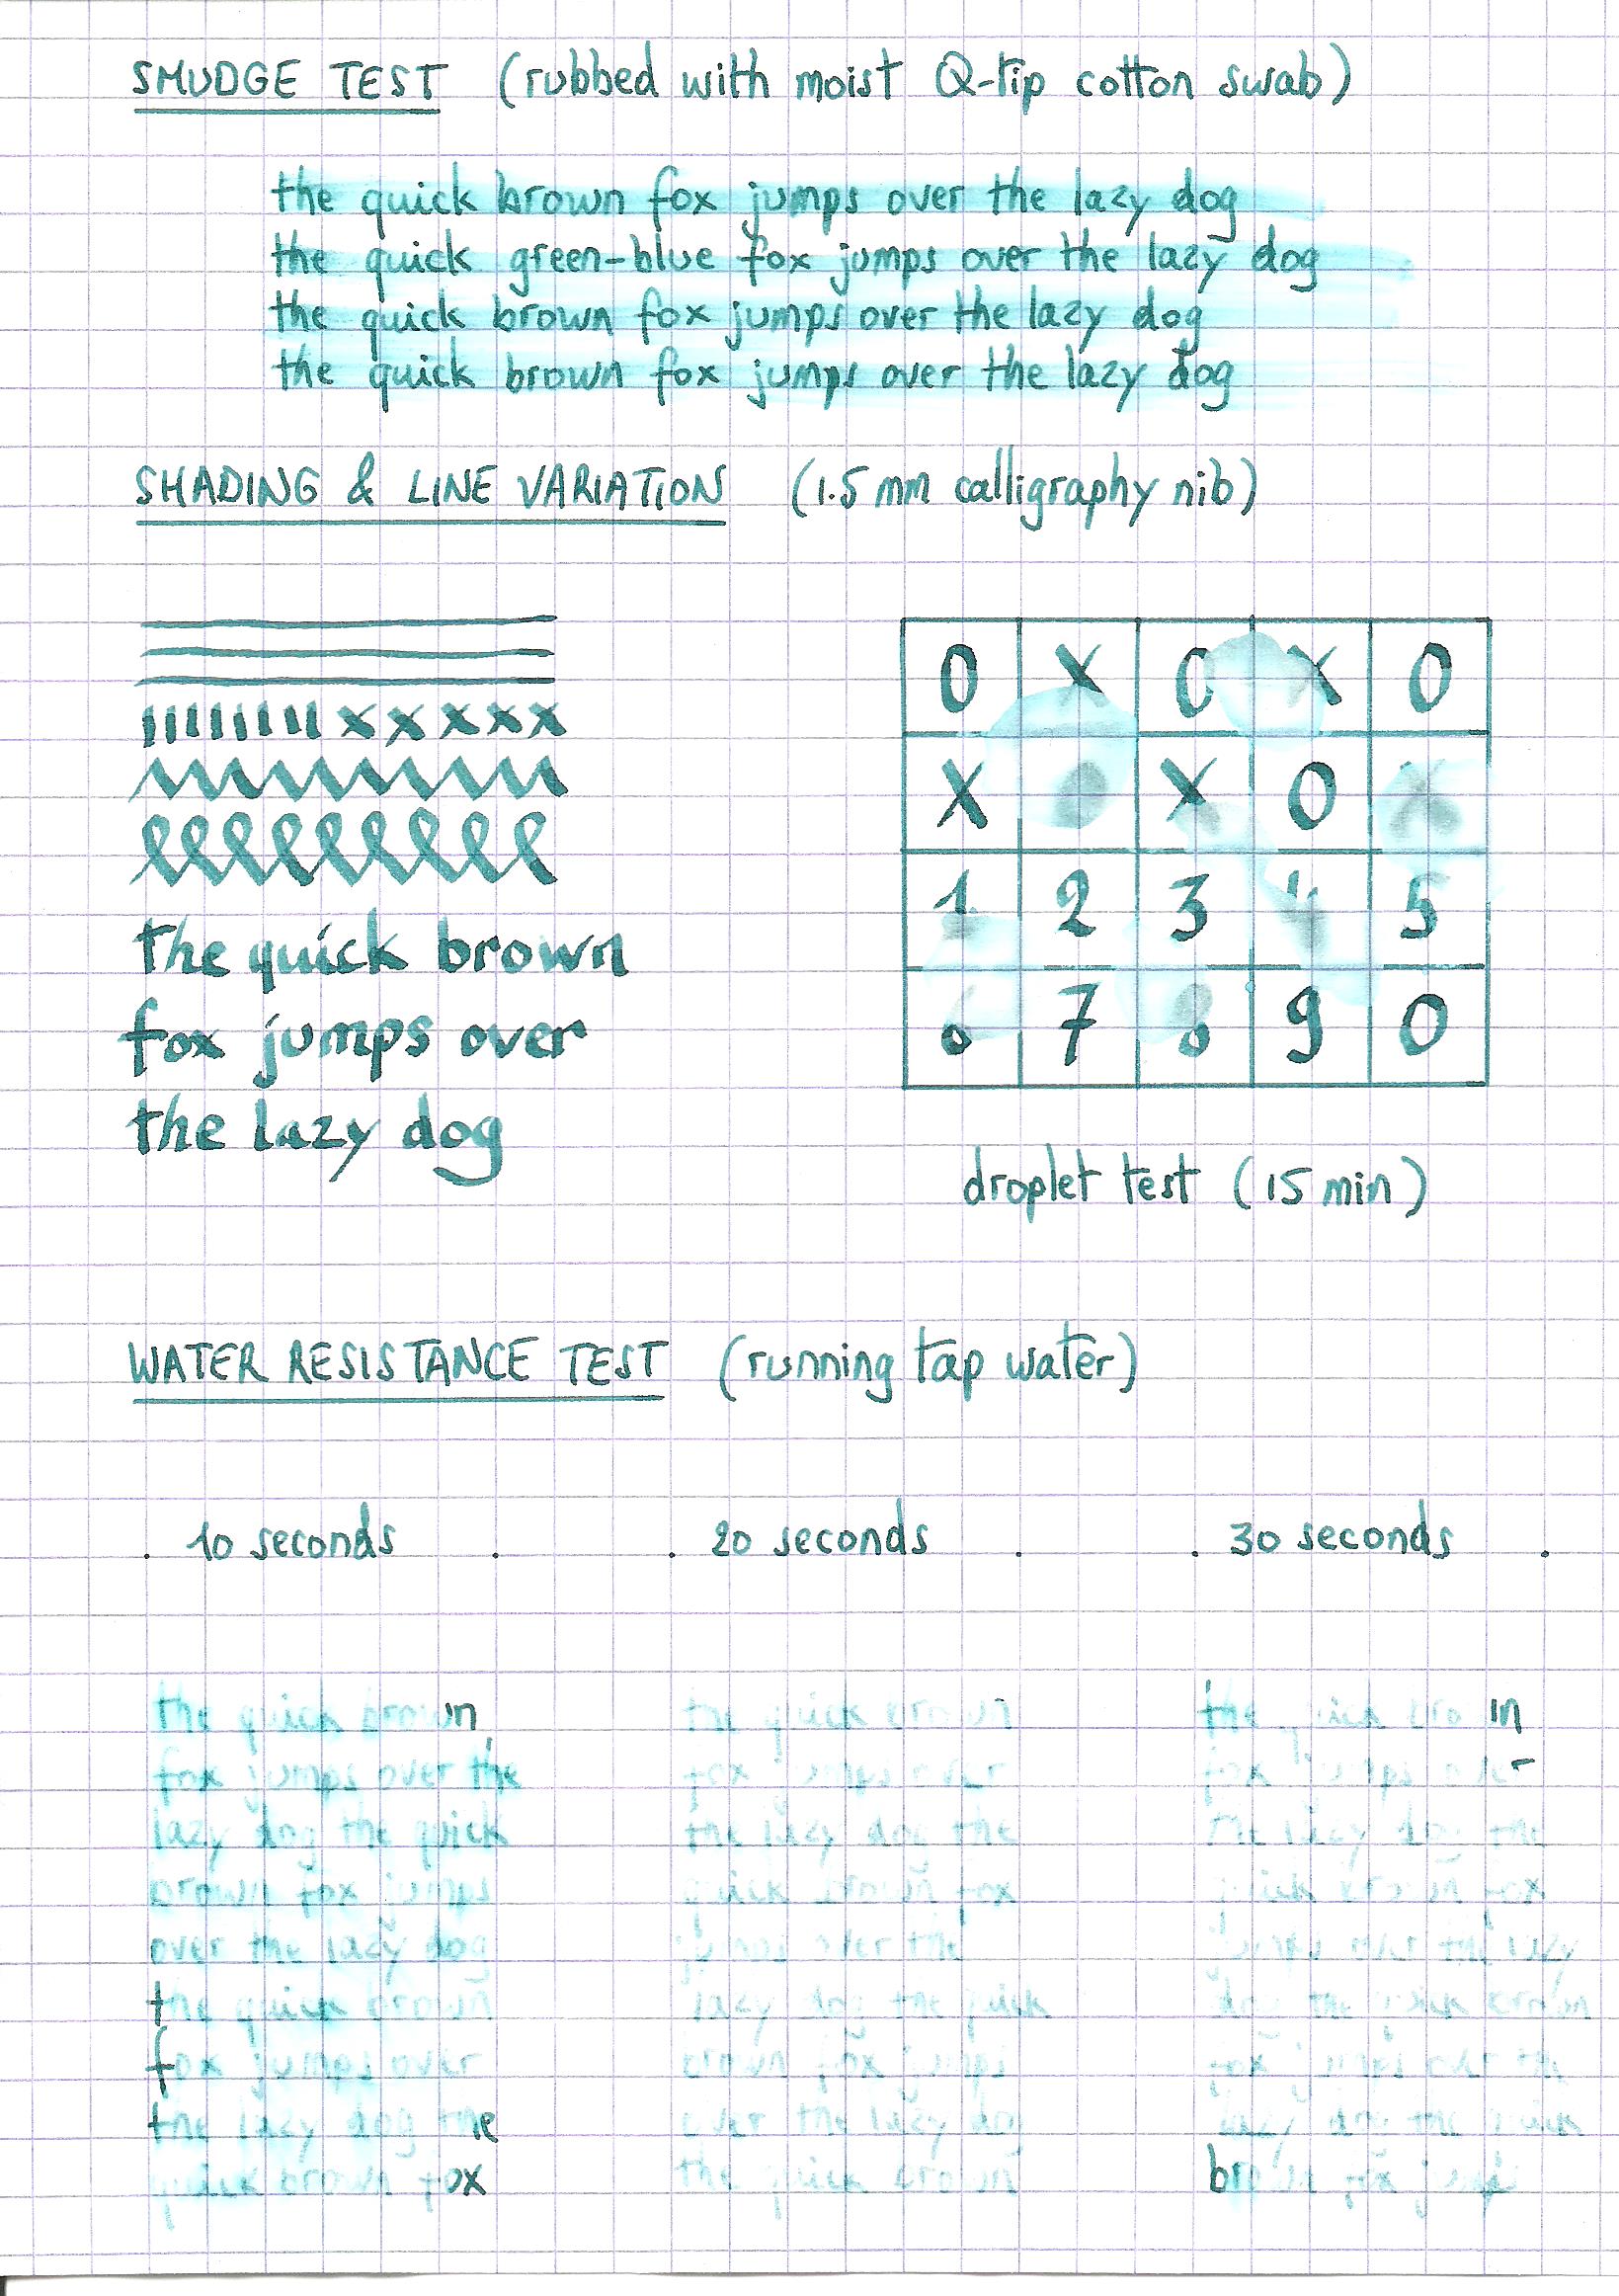 SMUDGE TEST (rubbed with moist Q-tip cotton swab)
the quick brown fox jumps over the lazy dog
the quick green-blue fox jumps over the lazy dog
the quick brown fox jumps over the lazy dog
the quick brown fox jumps over the lazy dog
SHADING & LINE VARIATION (1.5 mm calligraphy nib)
x x x x x
the quick brown
fox jumps over
the lazy dog
0 X 0 X 0
X X 0
1 2 3 4 5
6 7 8 9 0
droplet test (15 min)
WATER RESISTANCE TEST (running tap water)
10 seconds
20 seconds
30 seconds
the quick brown
fox jumps over the
lazy dog the quick
brown fox jumps
over the lazy dog
the quick brown
fox jumps over
the lazy dog the
quick brown fox
the quick brown
fox jumps over
the lazy dog the
quick brown fox
jumps over the
lazy dog the quick
brown fox jumps
over the lazy dog
the quick brown
the quick brown
fox jumps over
the lazy dog the
quick brown fox
jumps over the lazy
dog the quick brown
fox jumps over the
lazy dog the quick
brown fox jumps